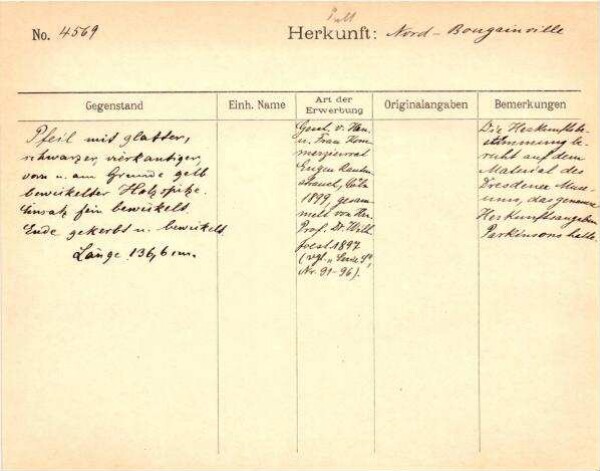 No. 4569
Herkunft: Nord-Bougainville
Gegenstand
Einh. Name
Art der Erwerbung
Originalangaben
Bemerkungen
Pfeil mit glatter,
schwarzer, vierkantiger,
vorn u. am Grunde gelb
bewickelter Holzspitze.
Einsatz fein bewickelt.
Ende gekerbt u. bewickelt.
Länge 136,6 cm.
Gest. v. Hrn.
u. Frau Kom-
merzienrat
Eugen Rauten-
strauch, Cöln
1899, gesam-
melt von Hrn.
Prof. Dr. Wilh.
Joest 1897
(vgl. "
Nr. 91-96).
Die Herkunftsbe-
stimmung be-
ruht auf dem
Material des
Dresdener Muse-
ums, das genaue
Herkunftsangaben
Parkinsons hatte.